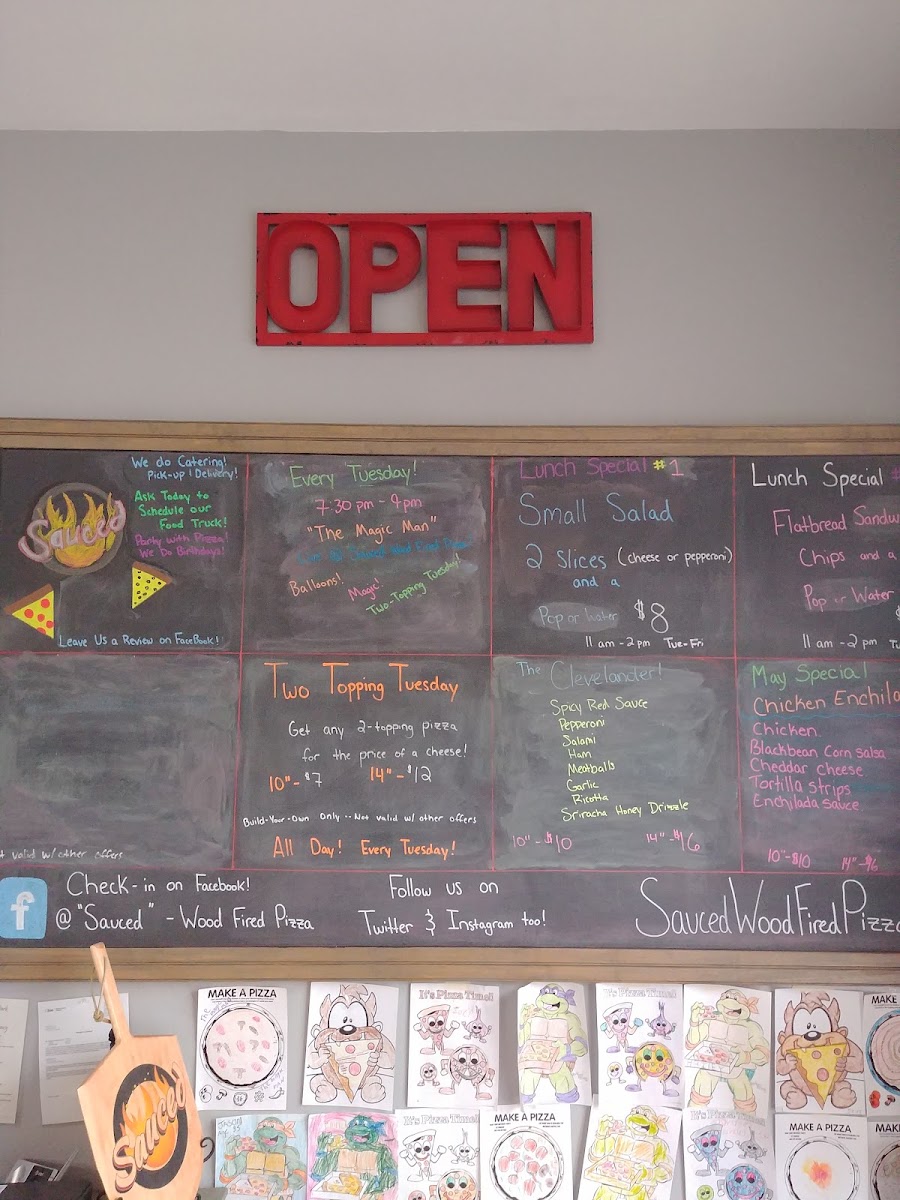 OPEN
We do Catering!
Pick-up & Delivery!
Ask Today to
Schedule our
Food Truck!
Party with Pizza!
We Do Birthdays!
Sauced
Leave Us a Review on FaceBook!
Every Tuesday!
7:30 pm - 9pm
"The Magic Man"
Live @ Sauced Wood Fired Pizza!
Balloons!
Magic!
Two-Topping Tuesday!
Lunch Special #1
Small Salad
2 Slices (cheese or pepperoni)
and a
Pop or water $8
11 am - 2 pm Tue-Fri
Lunch Special
Flatbread
Chips and a
Pop or Water
11 am - 2 pm
t valid w/ other offers
Two Topping Tuesday
Get any 2-topping pizza
for the price of a cheese!
10" - $7 14" - $12
Build-Your-Own Only -- Not valid w/ other offers
All Day! Every Tuesday!
The Clevelander!
Spicy Red Sauce
Pepperoni
Salami
Ham
Meatballs
Garlic
Ricotta
Sriracha Honey Drizzle
10" - $10 14" - $16
May Special
Chicken Enchila
Chicken
Blackbean Corn salsa
Cheddar cheese
Tortilla strips
Enchilada sauce
10" - $10 14" - $16
f
Check-in on Facebook!
@ "Sauced" - Wood Fired Pizza
Follow us on
Twitter & Instagram too!
SaucedWoodFiredPizza
MAKE A PIZZA
It's Pizza Time!
It's Pizza Time!
Sauced
It's Pizza Time!
MAKE A PIZZA
It's Pizza Time!
MAKE A PIZZA